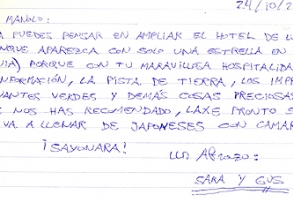 24/10/2
MANOLO:
A PUEDES PENSAR EN AMPLIAR EL HOTEL DE L
NQUE APAREZCA CON SOLO UNA ESTRELLA EN
UÍA) PORQUE CON TU MARAVILLOSA HOSPITALIDA
NFORMACIÓN, LA PISTA DE TIERRA, LOS IMP
VANTES VERDES Y DEMÁS COSAS PRECIOSAS
E NOS HAS RECOMENDADO, LAXE PRONTO S
VA A LLENAR DE JAPONESES CON CAMAR
¡SAYONARA! UN ABRAZO:
SARA Y GUS